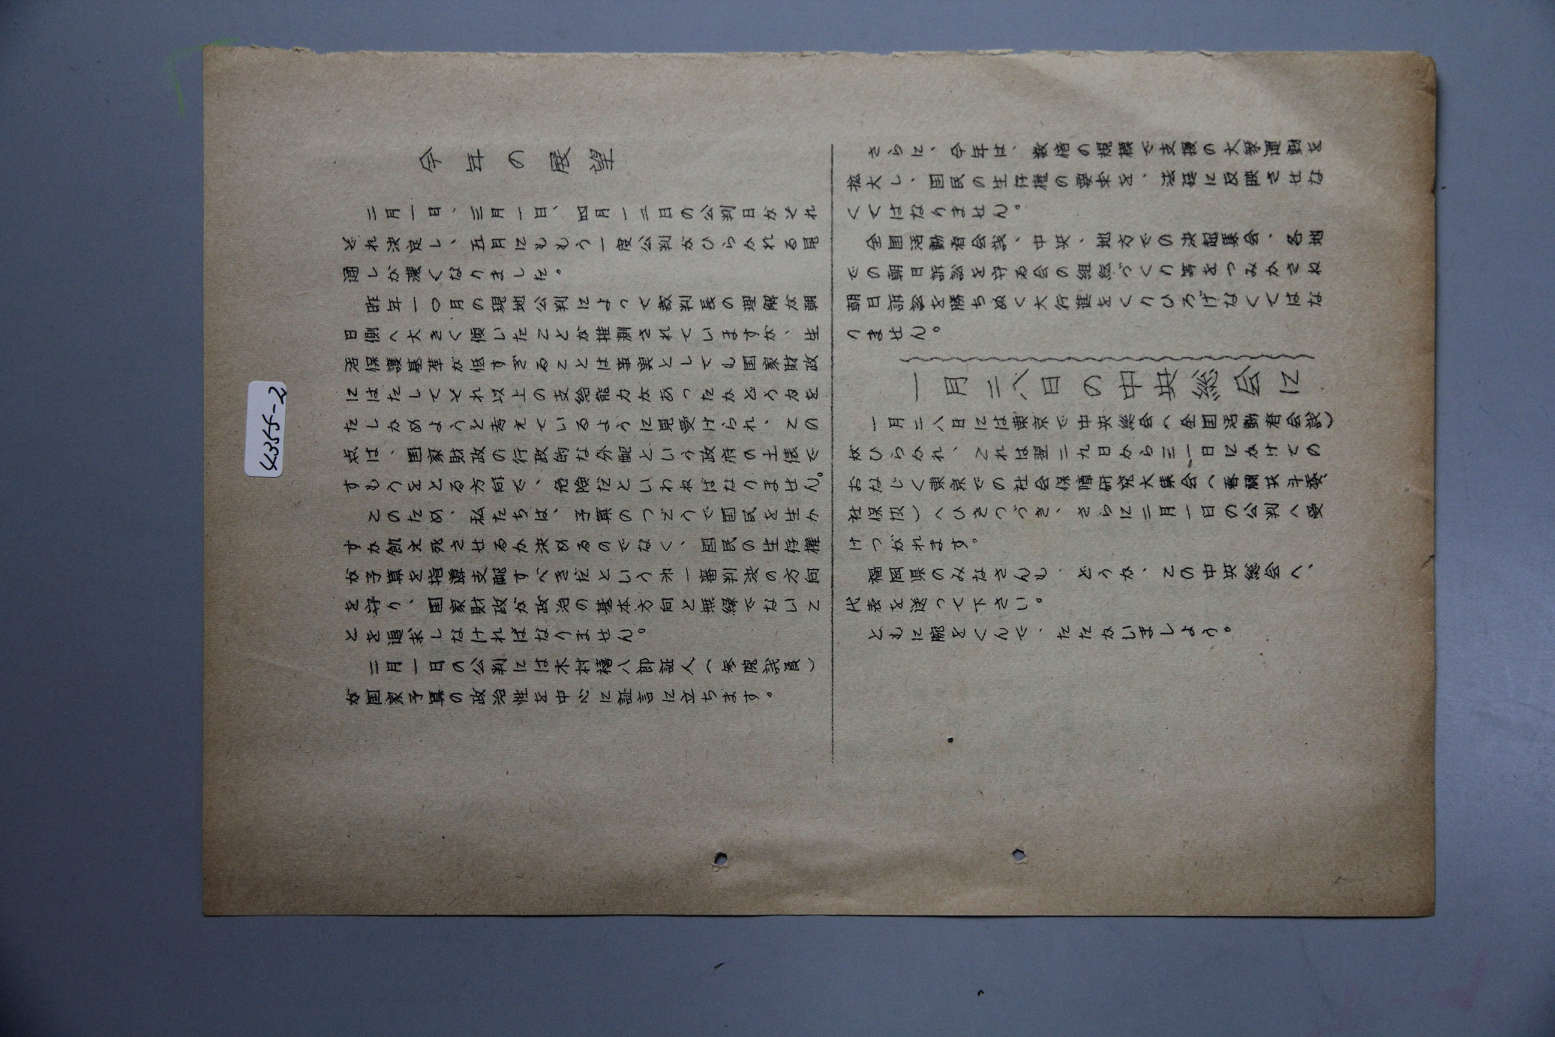 今年の展望
二月一日、三月一日、四月一二日の公判日がそれ
ぞれ決定し、五月にももう一度公判がひらかれる見
通しが濃くなりました。
昨年一〇月の現地公判によって裁判長の理解が朝
日側へ大きく傾いたことが推測されていますが、生
活保護基準が低すぎることは事実としても国家財政
にはたしてそれ以上の支給能力があったかどうかを
たしかめようと考えているように見受けられ、この
点は、国家財政の行政的な分配という政府の土俵で
すもうをとる方向で、危険だといわねばなりません。
このため、私たちは、予算のつごうで国民を生か
すか飢え死させるか決めるのでなく、国民の生存権
が予算を指導支配すべきだという第一審判決の方向
を守り、国家財政が政治の基本方向と無縁でないこ
とを追求しなければなりません。
二月一日の公判には木村禧八郎証人(参院議員)
が国家予算の政治性を中心に証言に立ちます。
さらに、今年は、数倍の規模で支援の大衆運動を
拡大し、国民の生存権の要求を、法廷に反映させな
くてはなりません。
全国活動者会議、中央、地方での決起集会、各地
での朝日訴訟を守る会の組織づくり等をつみかさね
朝日訴訟を勝ちぬく大行進をくりひろげなくてはな
りません。
一月二八日の中央総会に
一月二八日には東京で中央総会(全国活動者会議)
がひらかれ、これは翌二九日から三一日にかけての
おなじく東京での社会保障研究大集会(春闘共斗委、
社保協)へひきつづき、さらに二月一日の公判へ受
けつがれます。
福岡県のみなさんも、どうか、この中央総会へ、
代表を送って下さい。
ともに腕をくんで、たたかいましょう。
4355-2